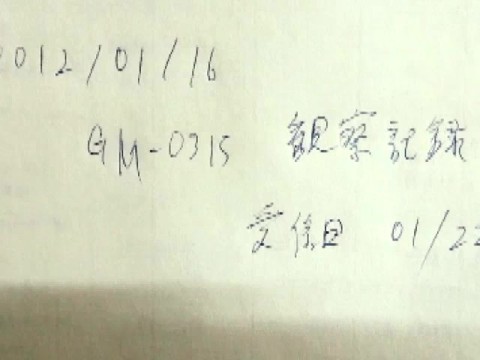 2012/01/16
GM-0315 観察記録
受信日 01/22